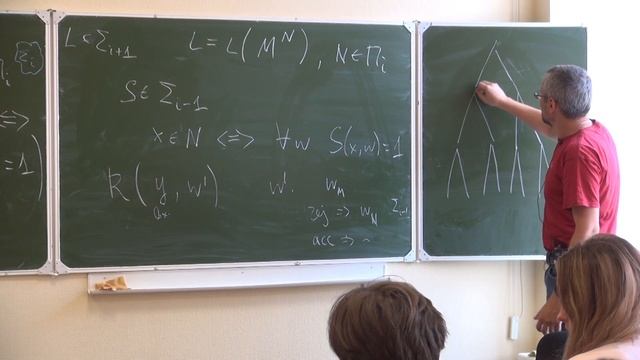 Π_i
Σ_i
<=>
= 1)
L ∈ Σ_{i+1} L = L(M^N), N ∈ Π_i
S ∈ Σ_{i-1}
x ∈ N <=> ∀w S(x,w)=1
R(y, w') w' w_M
rej => w_N Σ_{i-1}
acc => ~